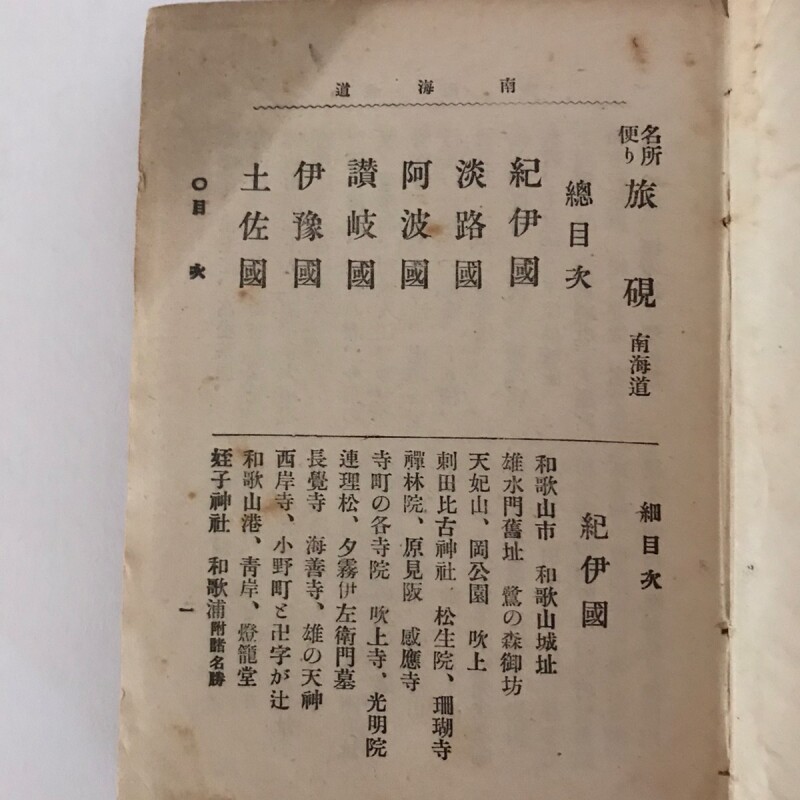 南海道
名所便り 旅硯 南海道
總目次
紀伊國
淡路國
阿波國
讃岐國
伊豫國
土佐國
〇目次
細目次
紀伊國
和歌山市 和歌山城址
雄水門舊址 鷺の森御坊
天妃山、岡公園 吹上
刺田比古神社 松生院、珊瑚寺
禪林院、原見阪 感應寺
寺町の各寺院 吹上寺、光明院
連理松、夕霧伊左衛門墓
長覺寺 海善寺、雄の天神
西岸寺、小野町と卍字が辻
和歌山港、靑岸、燈籠堂
蛭子神社 和歌浦附諸名勝
一